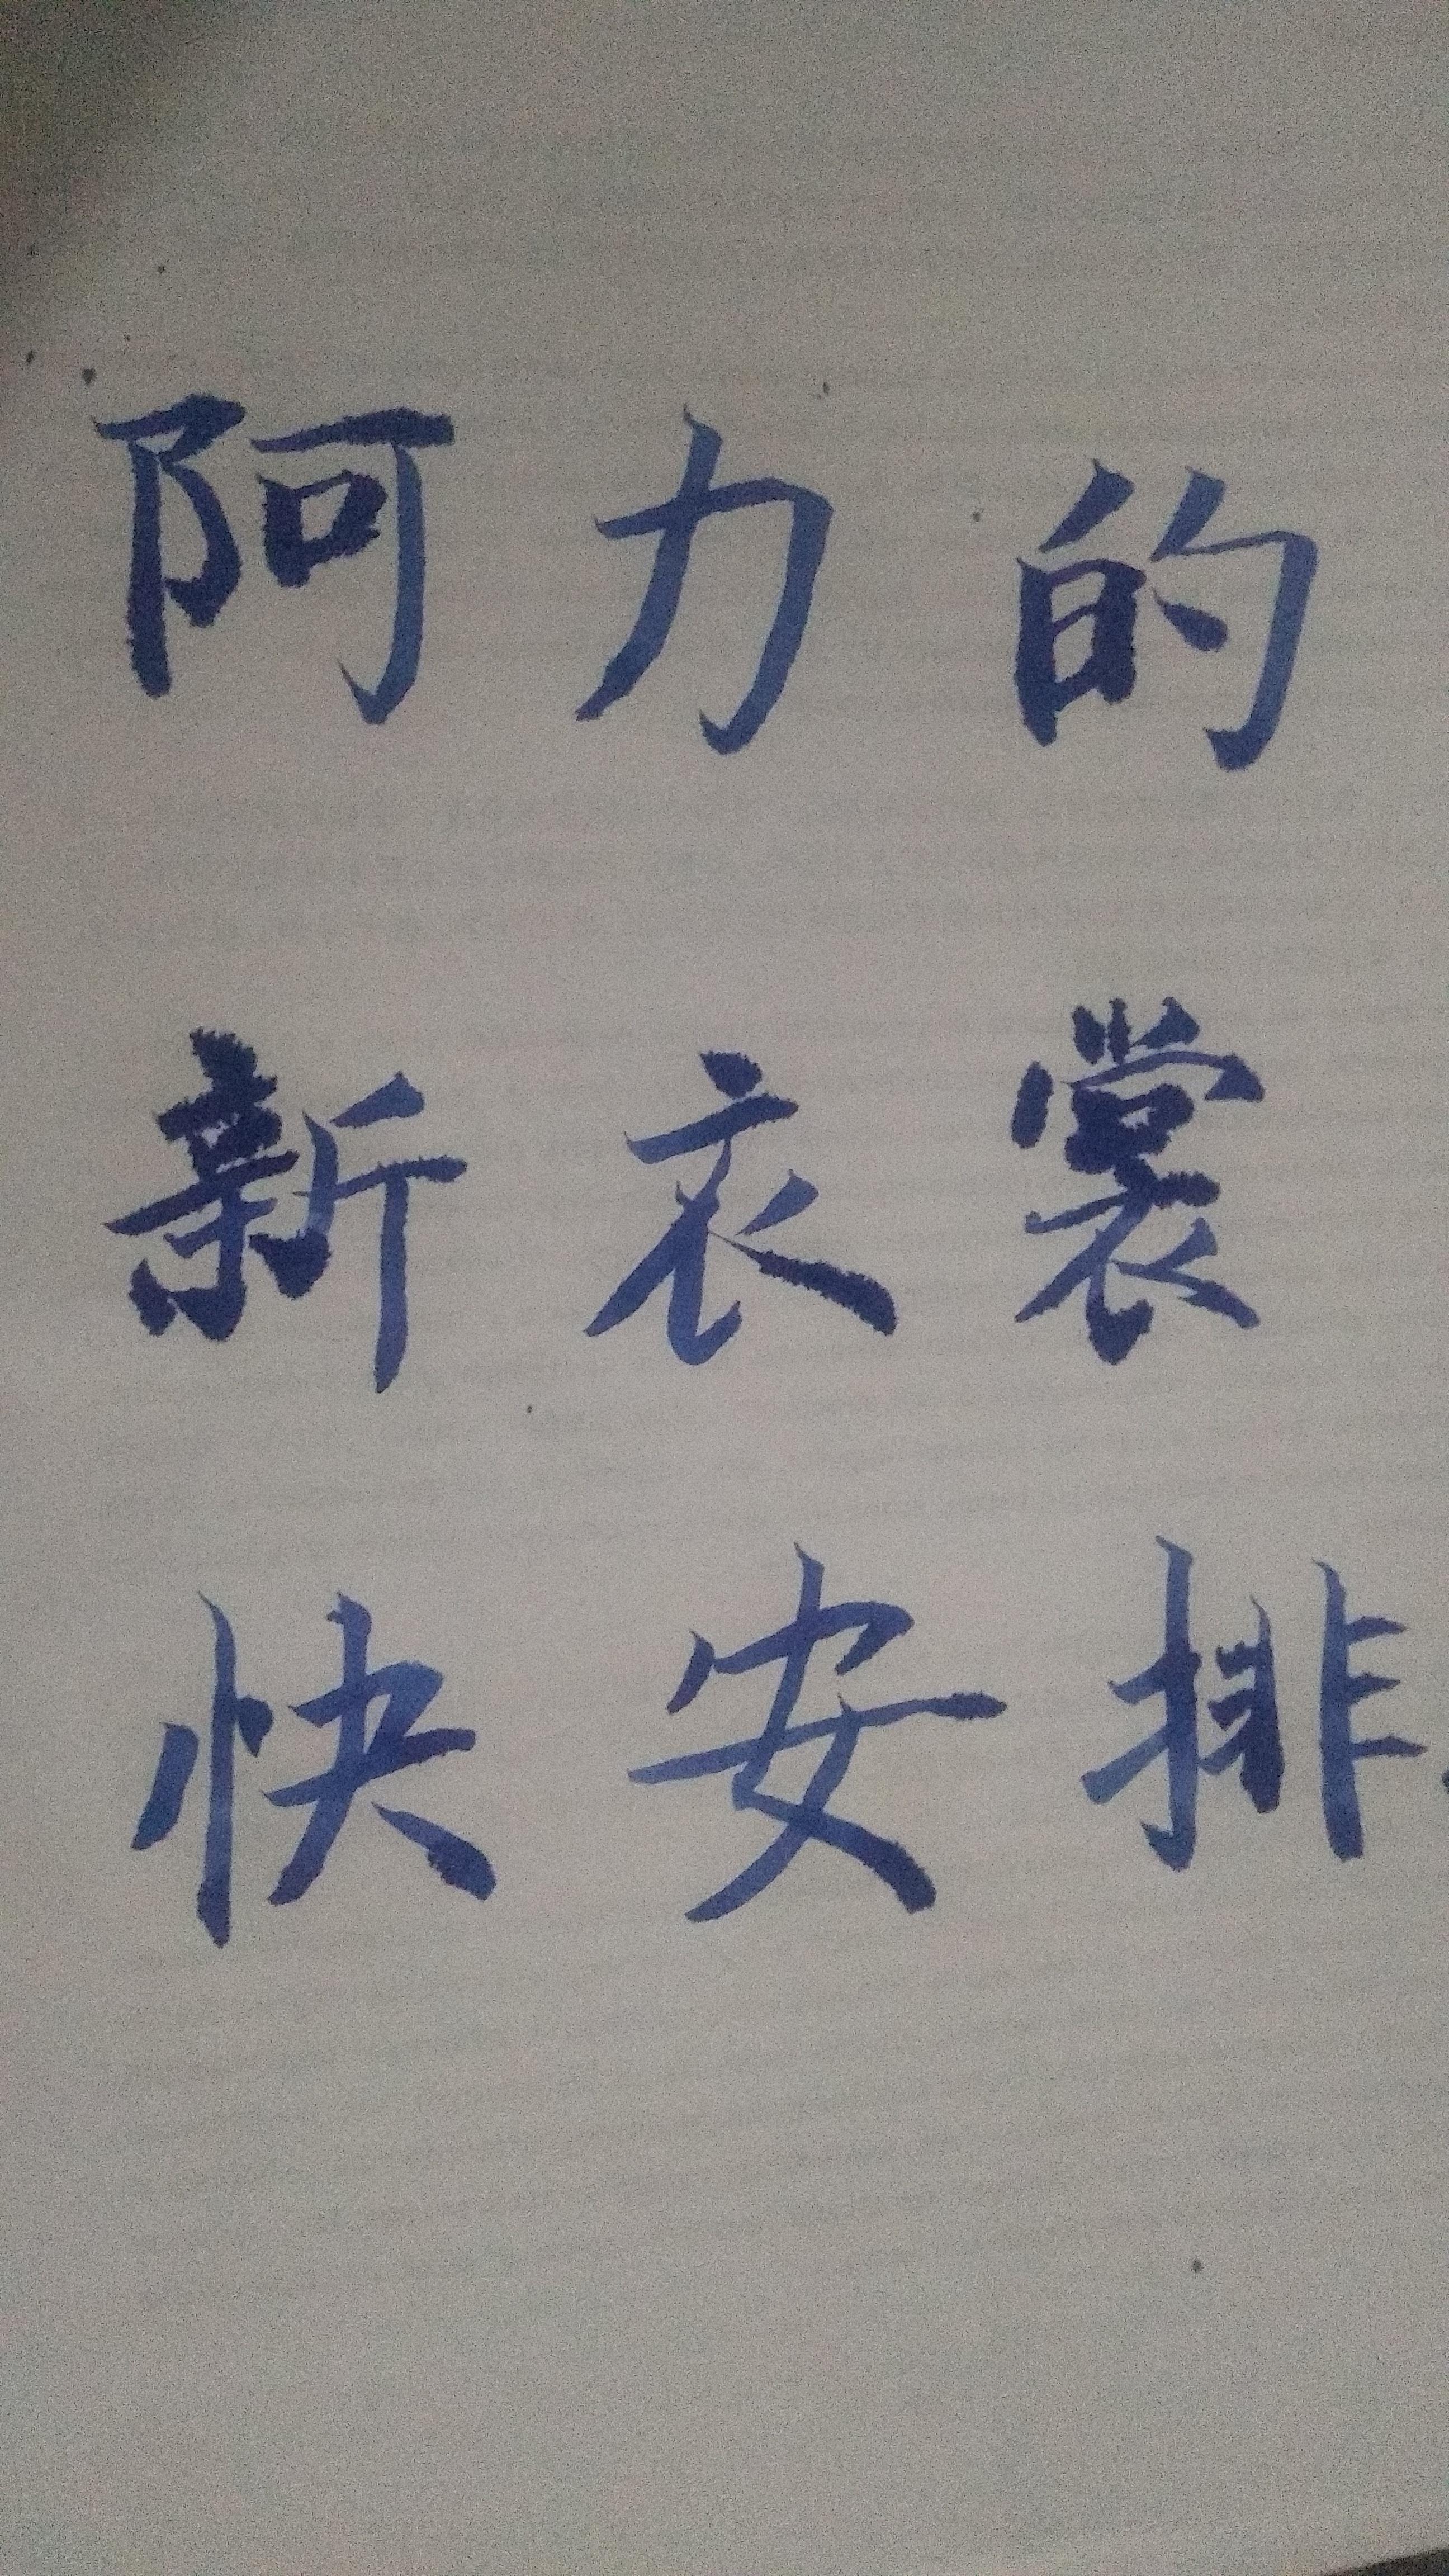 阿力的
新衣裳
快安排